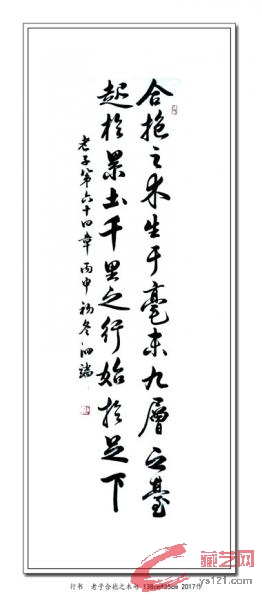 合抱之木生于毫末九層之臺
起於累土千里之行始於足下
老子第六十四章丙申初冬泗端
行书 老子合抱之木句 138cm×35cm 2017作
藏艺网
ys121.com